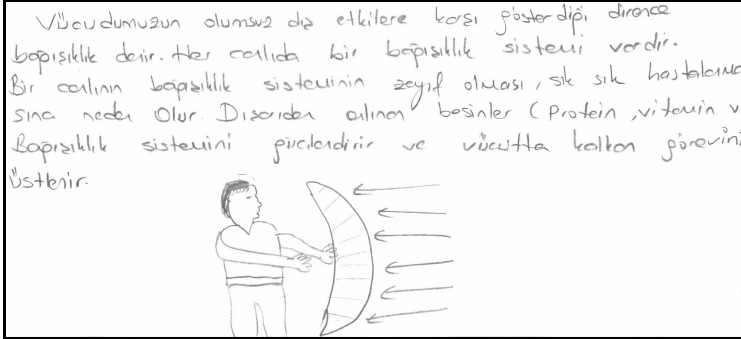 Vücudumuzun olumsuz dış etkilere karşı gösterdiği dirence
bağışıklık denir. Her canlıda bir bağışıklık sistemi vardır.
Bir canlının bağışıklık sisteminin zayıf olması, sık sık hastalanma
sına neden olur. Dışarıdan alınan besinler (Protein, vitamin v
Bağışıklık sistemini güçlendirir ve vücutta kalkan görevini
üstlenir.